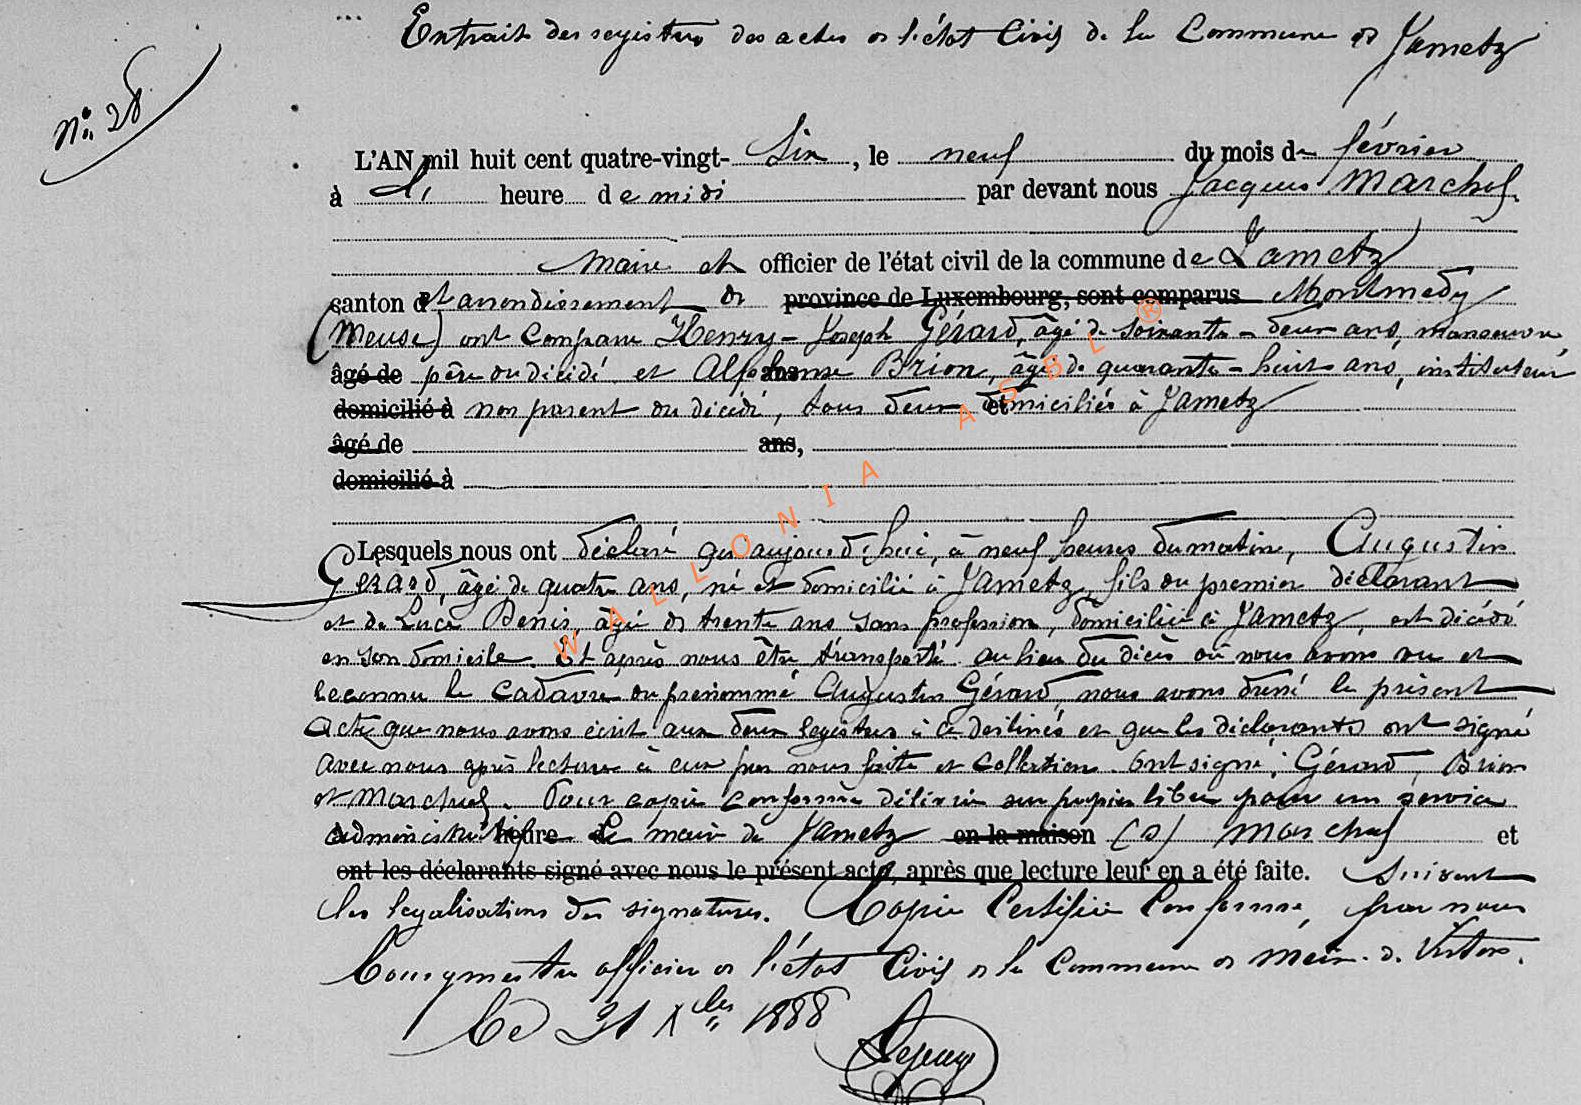 Extrait des registres des actes de l'état Civil de la Commune de Jametz
N° 28
L'AN mil huit cent quatre-vingt- six, le neuf du mois de février
à une heure de midi par devant nous Jacques Marchal
maire et officier de l'état civil de la commune de Jametz
canton et arrondissement de province de Luxembourg, sont comparus Montmédy
(Meuse) ont comparu Henry-Joseph Gérard, âgé de soixante-deux ans, manoeuvre
âgé de père du décédé et Alphonse Brion, âgé de quarante-huit ans, instituteur
domicilié à non parent du décédé, tous deux domiciliés à Jametz
âgé de ans,
domicilié à
Lesquels nous ont déclaré qu'aujourd'hui, à neuf heures du matin, Augustin
Gérard, âgé de quatre ans, né et domicilié à Jametz, fils du premier déclarant
et de Luce Denis, âgée de trente ans sans profession, domiciliée à Jametz, est décédé
en son domicile. Et après nous être transporté au lieu du décès où nous avons vu et
reconnu le cadavre du prénommé Augustin Gérard, nous avons dressé le présent
acte que nous avons écrit aux deux registres à ce destinés et que les déclarants ont signé
avec nous après lecture à eux par nous faite et collection. Ont signé: Gérard, Brion
et Marchal. Pour copie conforme délivrée sur papier libre pour un service
administratif heure Le maire de Jametz en la maison (s) Marchal et
ont les déclarants signé avec nous le présent acte, après que lecture leur en a été faite. Suivent
les légalisations des signatures. Copie Certifiée Conforme, par nous
Bourgmestre officier de l'état Civil de la Commune de Meix-d-Virton.
Le 31 Xbre 1888
Lejeune
WALLONIA ASBL ®